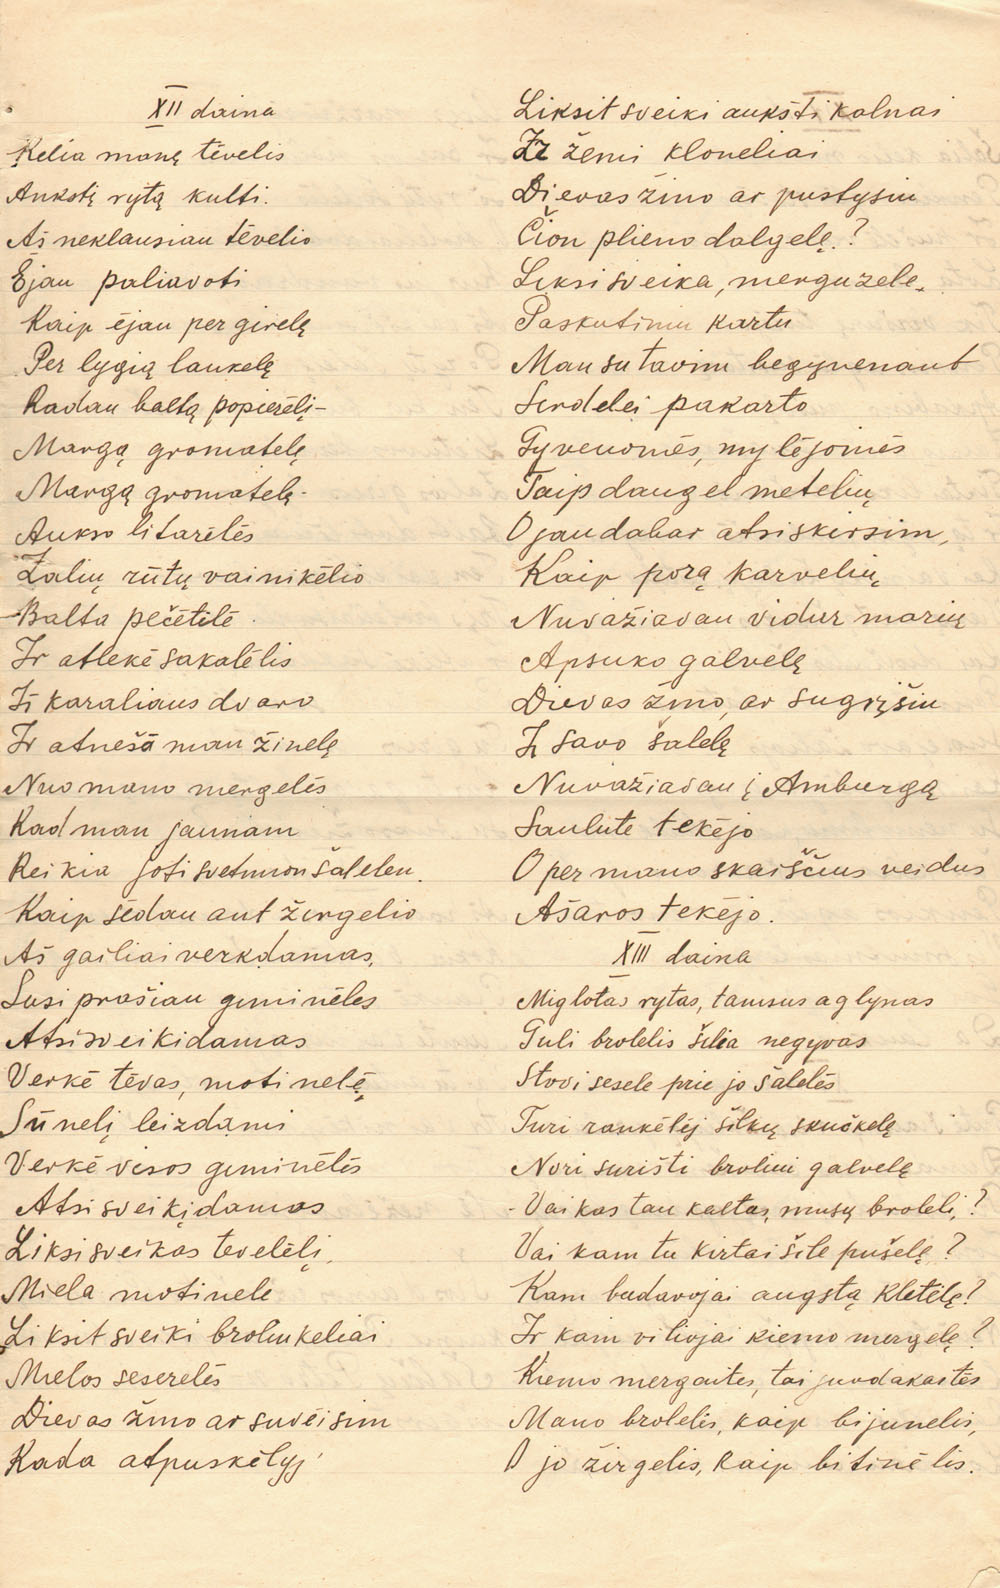 XII daina
Kelia manę tėvelis
Ankstį rytą kulti.
Aš neklausiau tėvelio
Ėjau paliavoti
Kaip ėjau per girelę
Per lygią laukelę
Radau baltą popierėlį-
Margą gromatelę
Margą gromatelę-
Aukso litarėlės
Žalių rūtų vainikėlio
Balta pečėtilė.
Ir atlekė sakalėlis
Iš karaliaus dvaro
Ir atnešā man žinelę
Nuo mano mergelės
Kad man jaunam
Reikia joti svetimon šalelen.
Kaip sėdau ant žirgelio
Aš gailiai verkdamas,
Susiprašiau giminėles
Atsisveikidamas
Verkė tėvas, motinelė,
Sūnelį leizdami
Verkė visos giminėlės
Atsisveikįdamas
Liksi sveikas tevelėlį,
Miela motinele
Liksit sveiki broliukeliai
Mielos seserelės
Dievas žino ar suvėisim
Kada atpuskėlyj
Liksit sveiki aukšti kalnai
Ir žemi kloneliai
Dievas žino ar pustysiu
Čion plieno dalgelę?
Liksi sveika, merguzele,
Paskutiniu kartu
Man su tavim begyvenant
Širdelei pakarto
Gyvenomės, mylėjomės
Taip daugel metelių
O jau dabar atsiskirsim,
Kaip porą karvelių
Nuvažiavau vidur marių
Apsuko galvelę
Dievas žino, ar sugrįšiu
Į savo šalelę
Nuvažiavau į Amburgą
Saulute tekėjo
O per mano skaiščius veidus
Ašaros tekėjo.
XIII daina
Miglotas rytas, tamsus aglynas
Guli brolelis šilia negyvas
Stovi sesele prie jo šalelės
Turi rankėlėj šilkų skuškelę
Nori surišti broliui galvelę
- Vai kas tau kaltas, musų broleli,?
Vai kam tu kirtai šile pušelę?
Kam budavojai augstą kletėlę?
Ir kam viliojai kiemo mergelę?
Kiemo mergaites, tai juodakartės
Mano brolelis, kaip bijunelis,
O jo žirgelis, kaip bitinėlis.